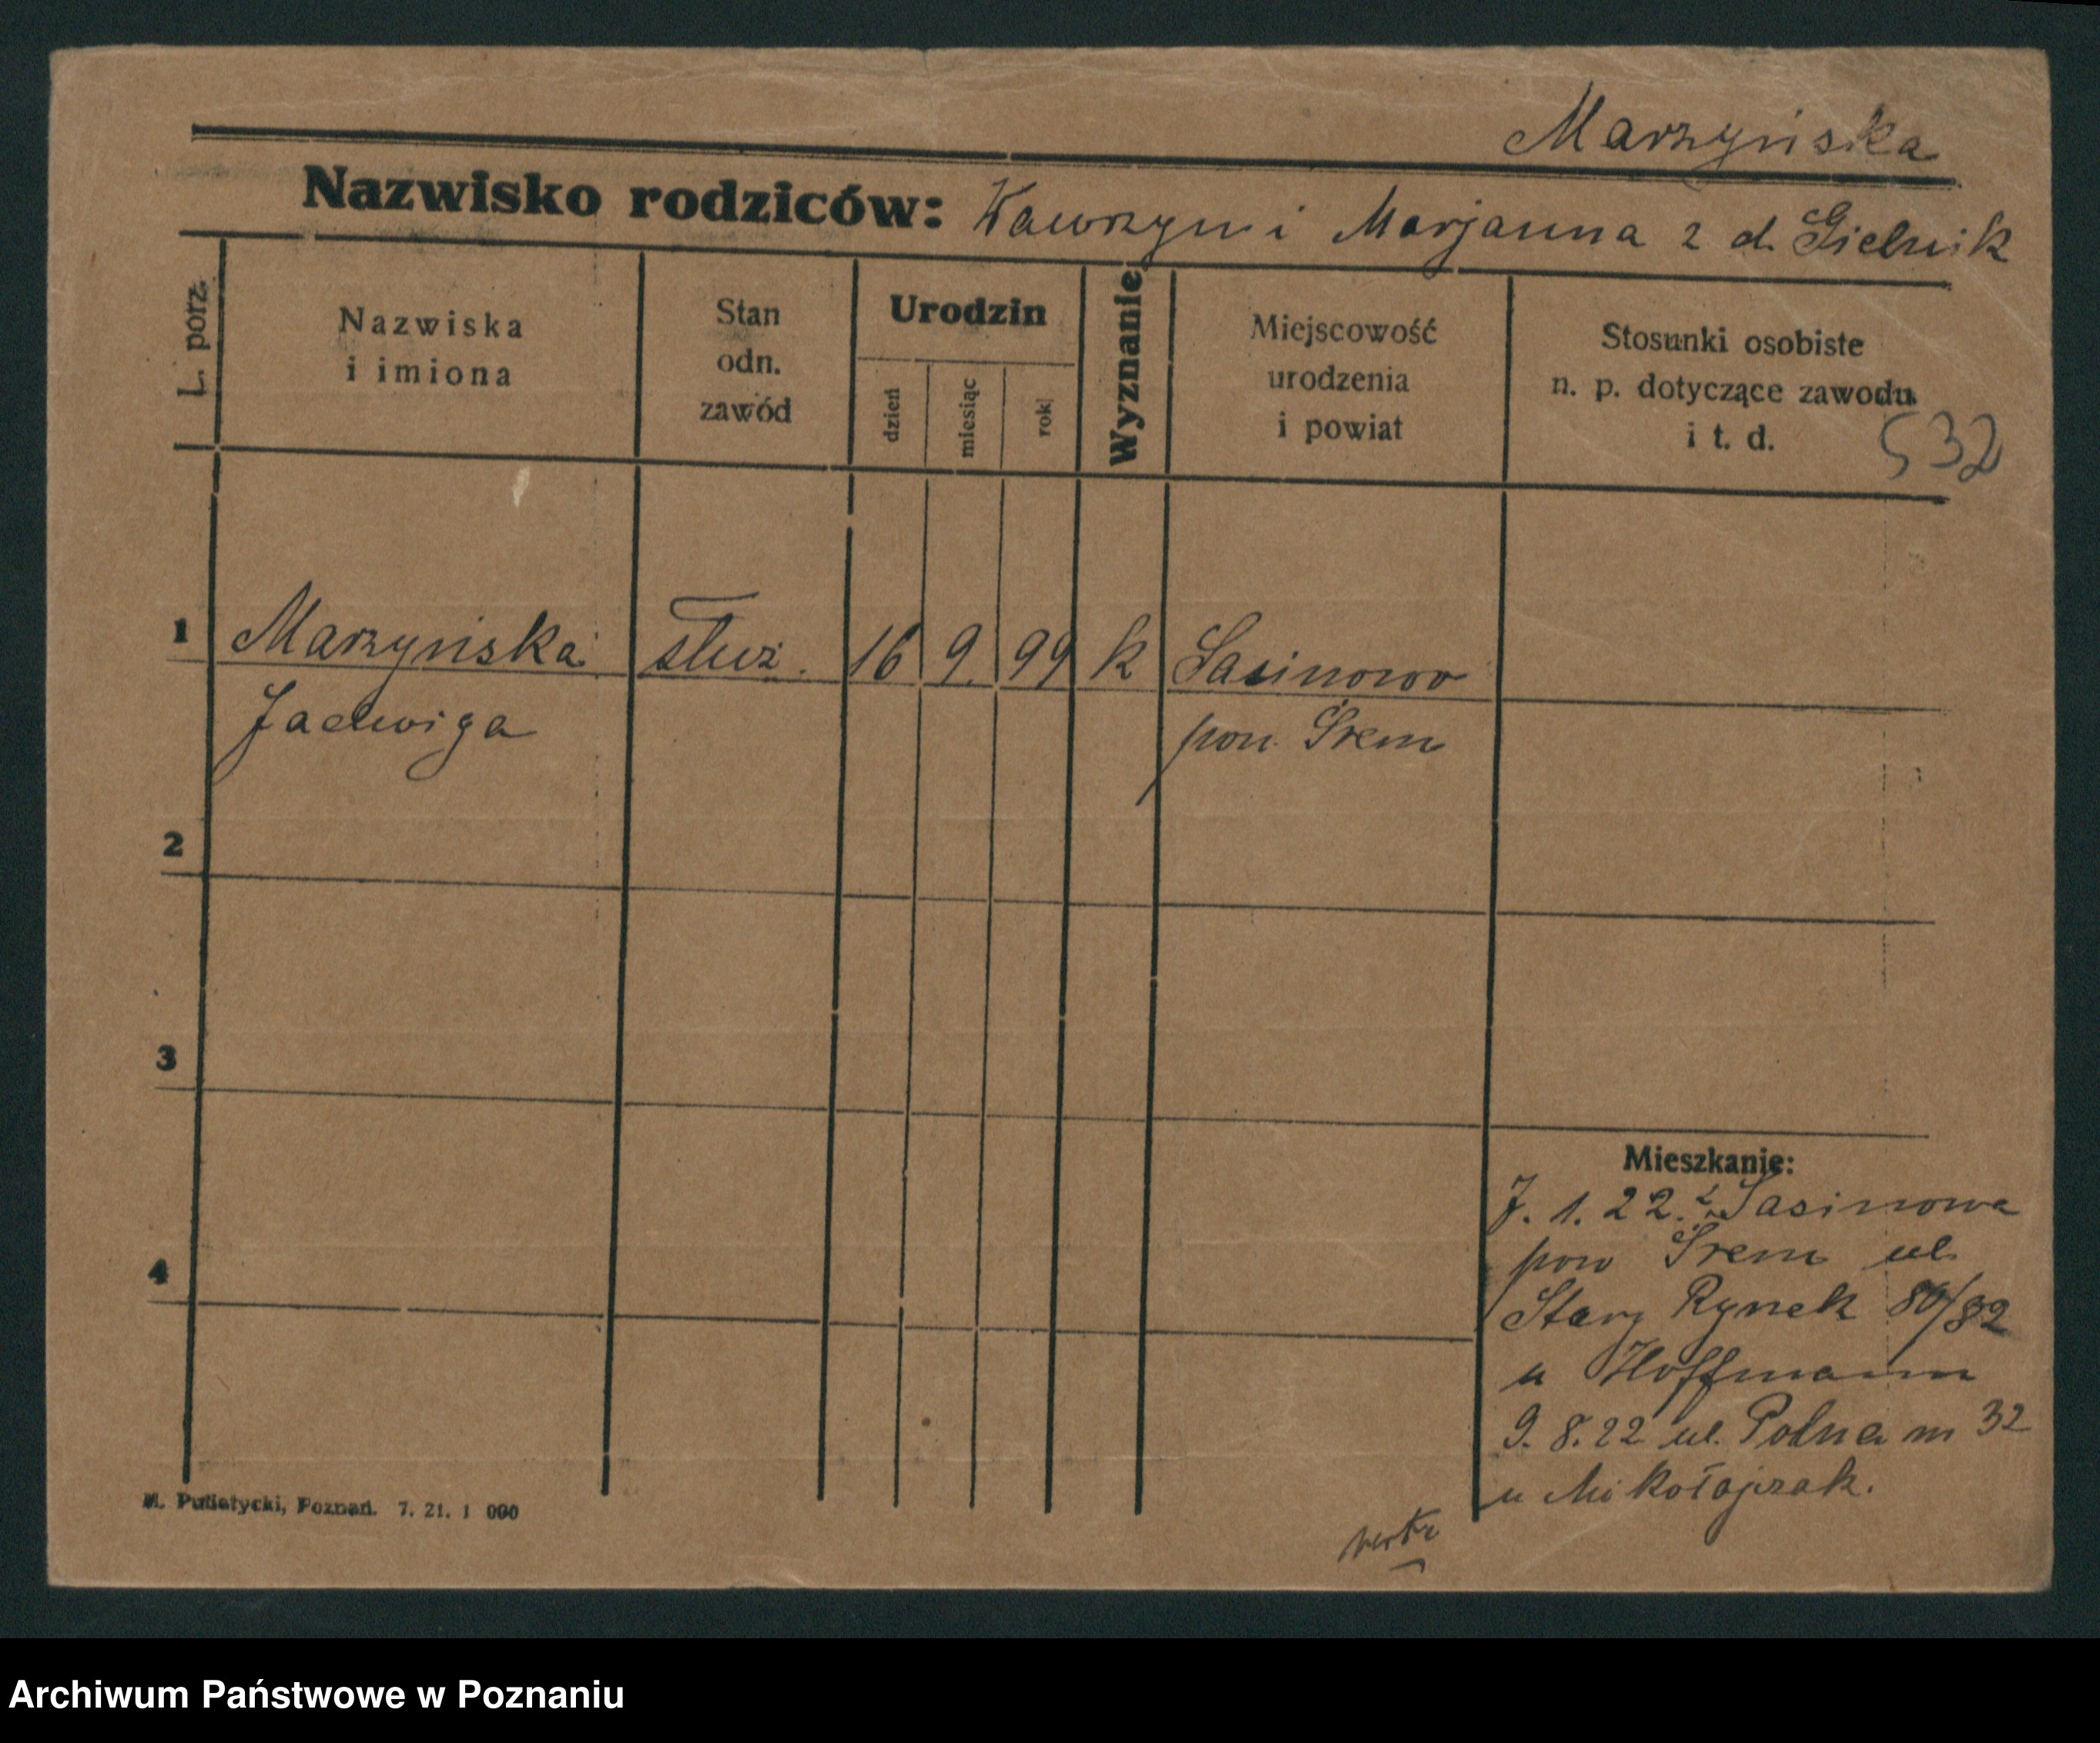 Marzyńska
Nazwisko rodziców: Wawrzyn i Marjanna z d. Gielnik
L. porz.
Nazwiska
i imiona
Stan
odn.
zawód
Urodzin
dzień
miesiąc
rok
Wyznanie
Miejscowość
urodzenia
i powiat
Stosunki osobiste
n. p. dotyczące zawodu
i t. d.
532
1 Marzyńska służ. 16 9. 99 k Sasinowo
Jadwiga pow. Śrem
2
3
4
Mieszkanie:
7. 1. 22. z Sasinowa
pow Śrem ul.
Stary Rynek 80/82
u Hoffmann
9. 8. 22 ul. Polna nr 32
u Mikołajczak.
M. Putiatycki, Poznań. 7. 21. 1 000
Archiwum Państwowe w Poznaniu